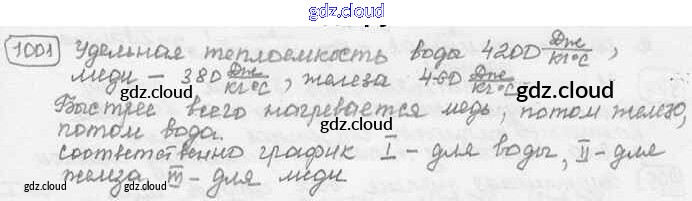 gdz.cloud
1001 Удельная теплоемкость воды 4200 Дж/кг°С,
меди - 380 Дж/кг°С, железа 460 Дж/кг°С
Быстрее всего нагревается медь, потом железо,
потом вода.
соответственно график I - для воды, II - для
железа III - для меди
gdz.cloud
gdz.cloud
gdz.cloud
gdz.cloud
gdz.cloud
gdz.cloud
gdz.cloud